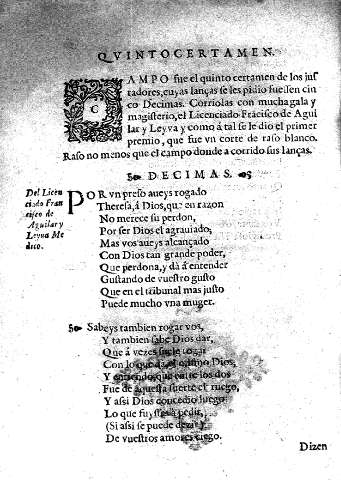 QVINTO CERTAMEN.
CAMPO fue el quinto certamen de los jus
tadores, cuyas lanças se les pidio fuessen cin
co Decimas. Corriolas con mucha gala y
magisterio, el Licenciado Frãcisco de Agui
lar y Leyva y como à tal se le dio el primer
premio, que fue vn corte de raso blanco.
Raso no menos que el campo donde a corrido sus lanças.
DECIMAS.
Del Licen
ciado Fran
cisco de
Aguilar y
Leyua Me
dico.
POR vn preso aueys rogado
Theresa, â Dios, que en razon
No merece su perdon,
Por ser Dios el agrauiado;
Mas vos aueys alcançado
Con Dios tan grande poder,
Que perdona, y dà â entender
Gustando de vuestro gusto
Que en el tribunal mas justo
Puede mucho vna muger.
Sabeys tambien rogar vos,
Y tambien sabe Dios dar,
Que â vezes suele rogar
Con lo que da, el mismo Dios,
Y entiendo que entre los dos
Fue de aquesta suerte el ruego,
Y assi Dios concedio luego
Lo que fuystes a pedir,
(Si assi se puede dezir)
De vuestros amores ciego.
Dizen